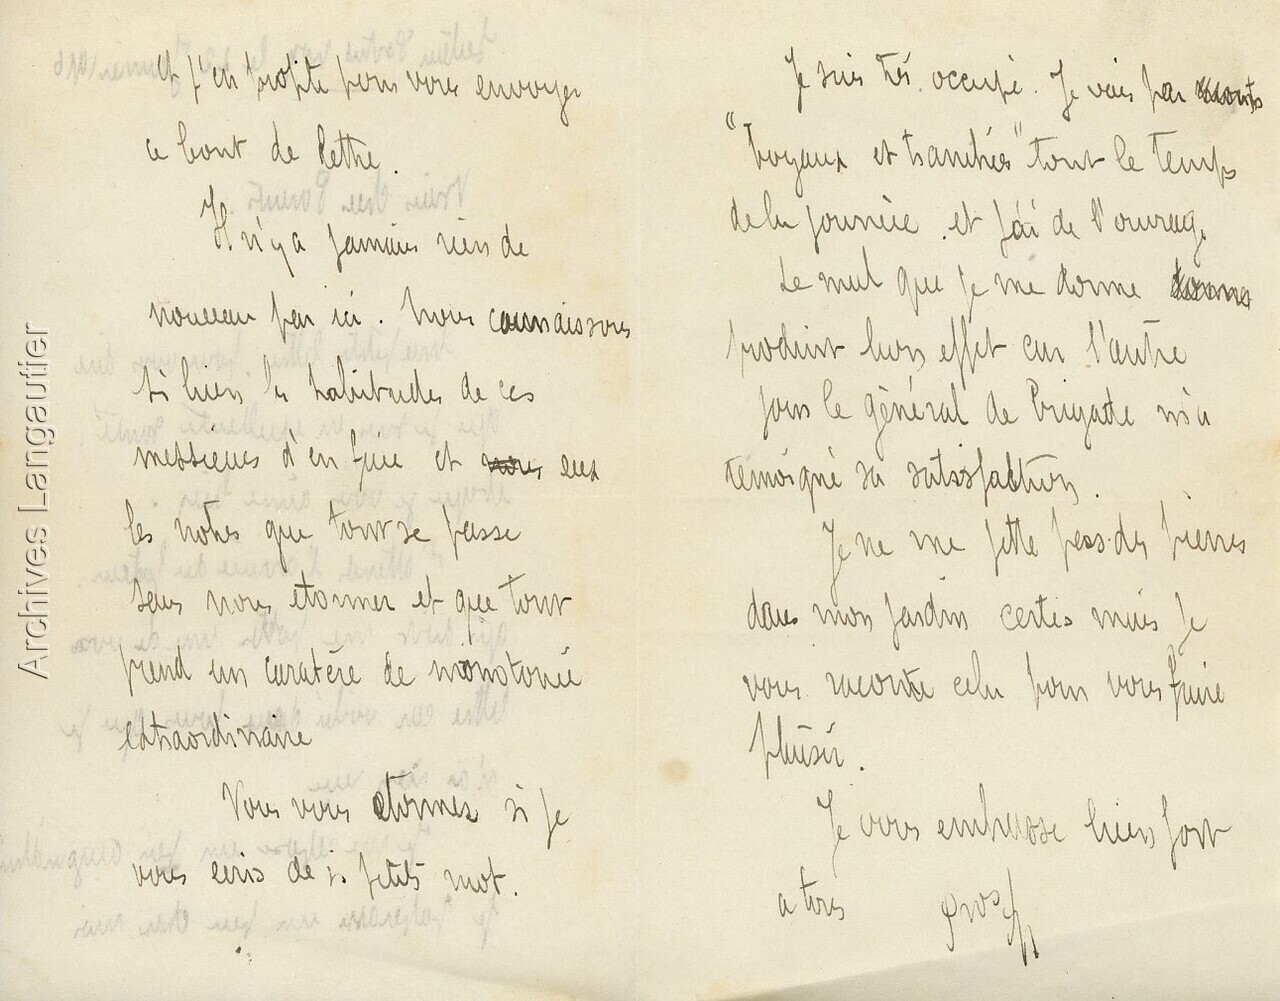 et j'en profite pour vous envoyer
ce bout de lettre.
Il n'y a jamais rien de
nouveau par ici. Nous connaissons
si bien les habitudes de ces
messieurs d'en face et nous eux
les notres que tout se passe
sans nous etonner et que tout
prend un caratère de monotonie
extraordinaire
Vous vous etonnez si je
vous ecris de si petits mot.
Je suis très occupé. Je vais par monts
"boyaux et tranchées" tout le temps
de la journée. et j'ai de l'ouvrage
Le mal que je me donne donne
produit bon effet car l'autre
jour le général de Brigade m'a
temoigné sa satisfaction.
Je ne me jette pas des pierres
dans mon jardin certes mais je
vous raconte cela pour vous faire
plaisir.
Je vous embrasse bien fort
a tous
Archives Langautier